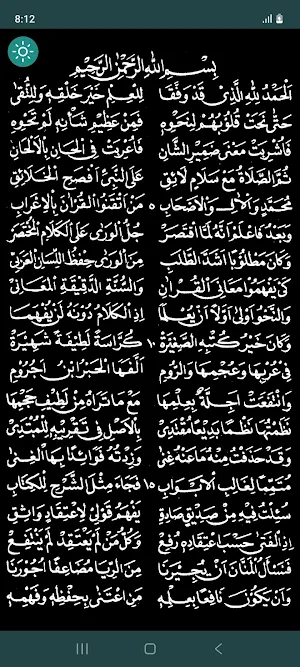 8:12
بِسْمِ اللهِ الرَّحْمٰنِ الرَّحِيْمِ
الْحَمْدُ لِلّٰهِ الَّذِيْ قَدْ وَفَّقَا لِلْعِلْمِ خَيْرَ خَلْقِهِ وَلِلتُّقَى
حَتَّى نَحَتْ قُلُوْبُهُمْ لِنَحْوِهِ فَمِنْ عَظِيْمِ شَأْنِهِ لَمْ تَحْوِهِ
فَأُشْرِبَتْ مَعْنَى ضَمِيْرِ الشَّانِ فَأَعْرَبَتْ فِي الْحَانِ بِالْأَلْحَانِ
ثُمَّ الصَّلَاةُ مَعَ سَلَامٍ لَائِقِ عَلَى النَّبِيِّ أَفْصَحِ الْخَلَائِقِ
مُحَمَّدٍ وَالْآلِ وَالْأَصْحَابِ ٥ مَنْ أَتْقَنُوا الْقُرْآنَ بِالْإِعْرَابِ
وَبَعْدُ فَاعْلَمْ أَنَّهُ لَمَّا اقْتَصَرْ جُلُّ الْوَرَى عَلَى الْكَلَامِ الْمُخْتَصَرْ
وَكَانَ مَطْلُوْبًا أَشَدَّ الطَّلَبِ مِنَ الْوَرَى حِفْظُ اللِّسَانِ الْعَرَبِيْ
كَيْ يَفْهَمُوْا مَعَانِيَ الْقُرْآنِ وَالسُّنَّةِ الدَّقِيْقَةِ الْمَعَانِيْ
وَالنَّحْوُ أَوْلَى أَوَّلًا أَنْ يُعْلَمَا إِذِ الْكَلَامُ دُوْنَهُ لَنْ يُفْهَمَا
وَكَانَ خَيْرُ كُتْبِهِ الصَّغِيْرَةْ ١٠ كُرَّاسَةً لَطِيْفَةً شَهِيْرَةْ
فِيْ عُرْبِهَا وَعُجْمِهَا وَالرُّوْمِ أَلَّفَهَا الْحَبْرُ ابْنُ آجُرُّوْمِ
وَانْتَفَعَتْ أَجِلَّةٌ بِعِلْمِهَا مَعْ مَا تَرَاهُ مِنْ لَطِيْفِ حَجْمِهَا
نَظَمْتُهَا نَظْمًا بَدِيْعًا مُقْتَدِيْ بِالْأَصْلِ فِيْ تَقْرِيْبِهِ لِلْمُبْتَدِيْ
وَقَدْ حَذَفْتُ مِنْهُ مَا عَنْهُ غِنَى وَزِدْتُهُ فَوَائِدًا بِهَا الْغِنَى
مُتَمِّمًا لِغَالِبِ الْأَبْوَابِ ١٥ فَجَاءَ مِثْلَ الشَّرْحِ لِلْكِتَابِ
سُئِلْتُ فِيْهِ مِنْ صَدِيْقٍ صَادِقِ يَفْهَمُ قَوْلِيْ لِاعْتِقَادٍ وَاثِقِ
إِذِ الْفَتَى حَسَبَ اعْتِقَادِهِ رُفِعْ وَكُلُّ مَنْ لَمْ يَعْتَقِدْ لَمْ يَنْتَفِعْ
فَنَسْأَلُ الْمَنَّانَ أَنْ يُجِيْرَنَا مِنَ الرِّيَا مُضَاعِفًا أُجُوْرَنَا
وَأَنْ يَكُوْنَ نَافِعًا بِعِلْمِهِ مَنِ اعْتَنَى بِحِفْظِهِ وَفَهْمِهِ